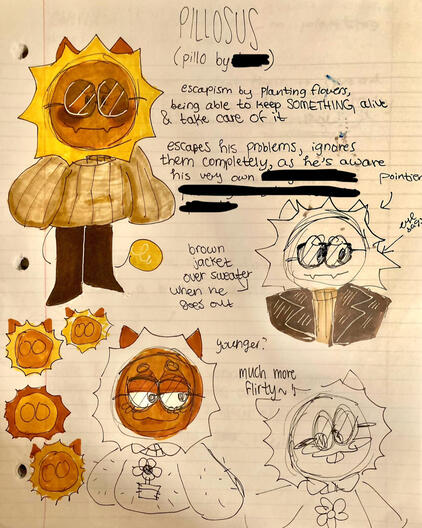 PILLOSUS
(pillo by
escapism by planting flowers,
being able to keep SOMETHING alive
& take care of it
escapes his problems, ignores
them completely, as he's aware
his very own
pointier
eye
brown
jacket
over sweater
when he
goes out
younger?
much more
flirty~!